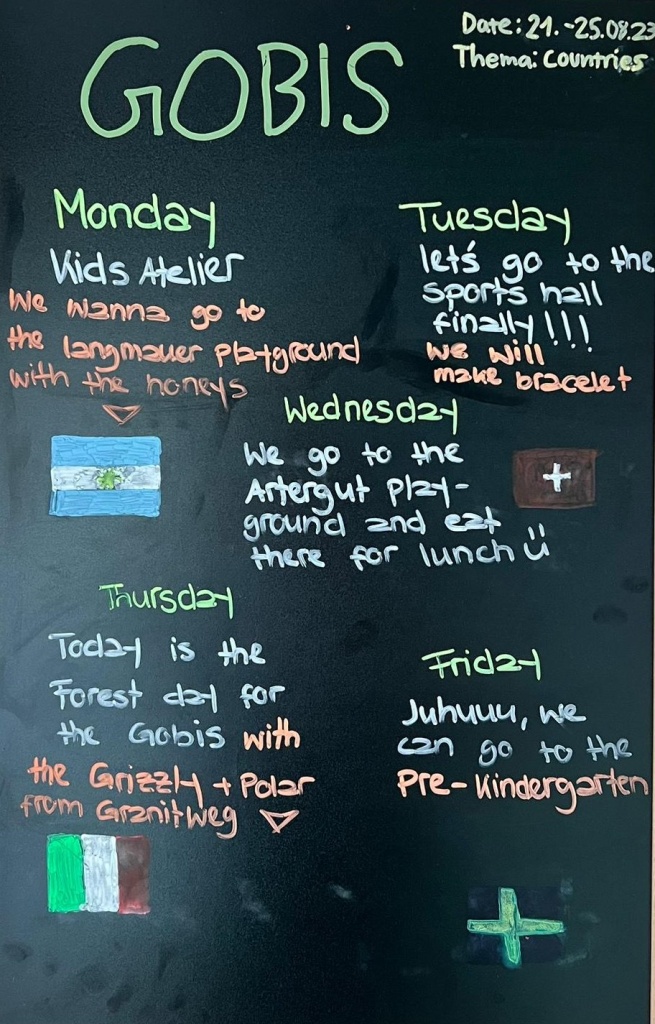 Date: 21.-25.08.23
Thema: Countries
GOBIS
Monday
Kids Atelier
We wanna go to
the langmauer Playground
with the honeys
Tuesday
let's go to the
sports hall
finally!!!
we will
make bracelet
Wednesday
We go to the
Artergut Play-
ground and eat
there for lunch ü
Thursday
Today is the
Forest day for
the Gobis with
the Grizzly + Polar
from Granitweg
Friday
Juhuuu, we
can go to the
Pre-Kindergarten